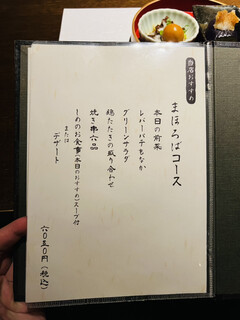 当店おすすめ
まほろばコース
本日の前菜
レバーパテもなか
グリーンサラダ
鶏たたきの盛り合わせ
焼き串六品
〆のお食事(本日のおすすめ)スープ付
または
デザート
六〇五〇円(税込)